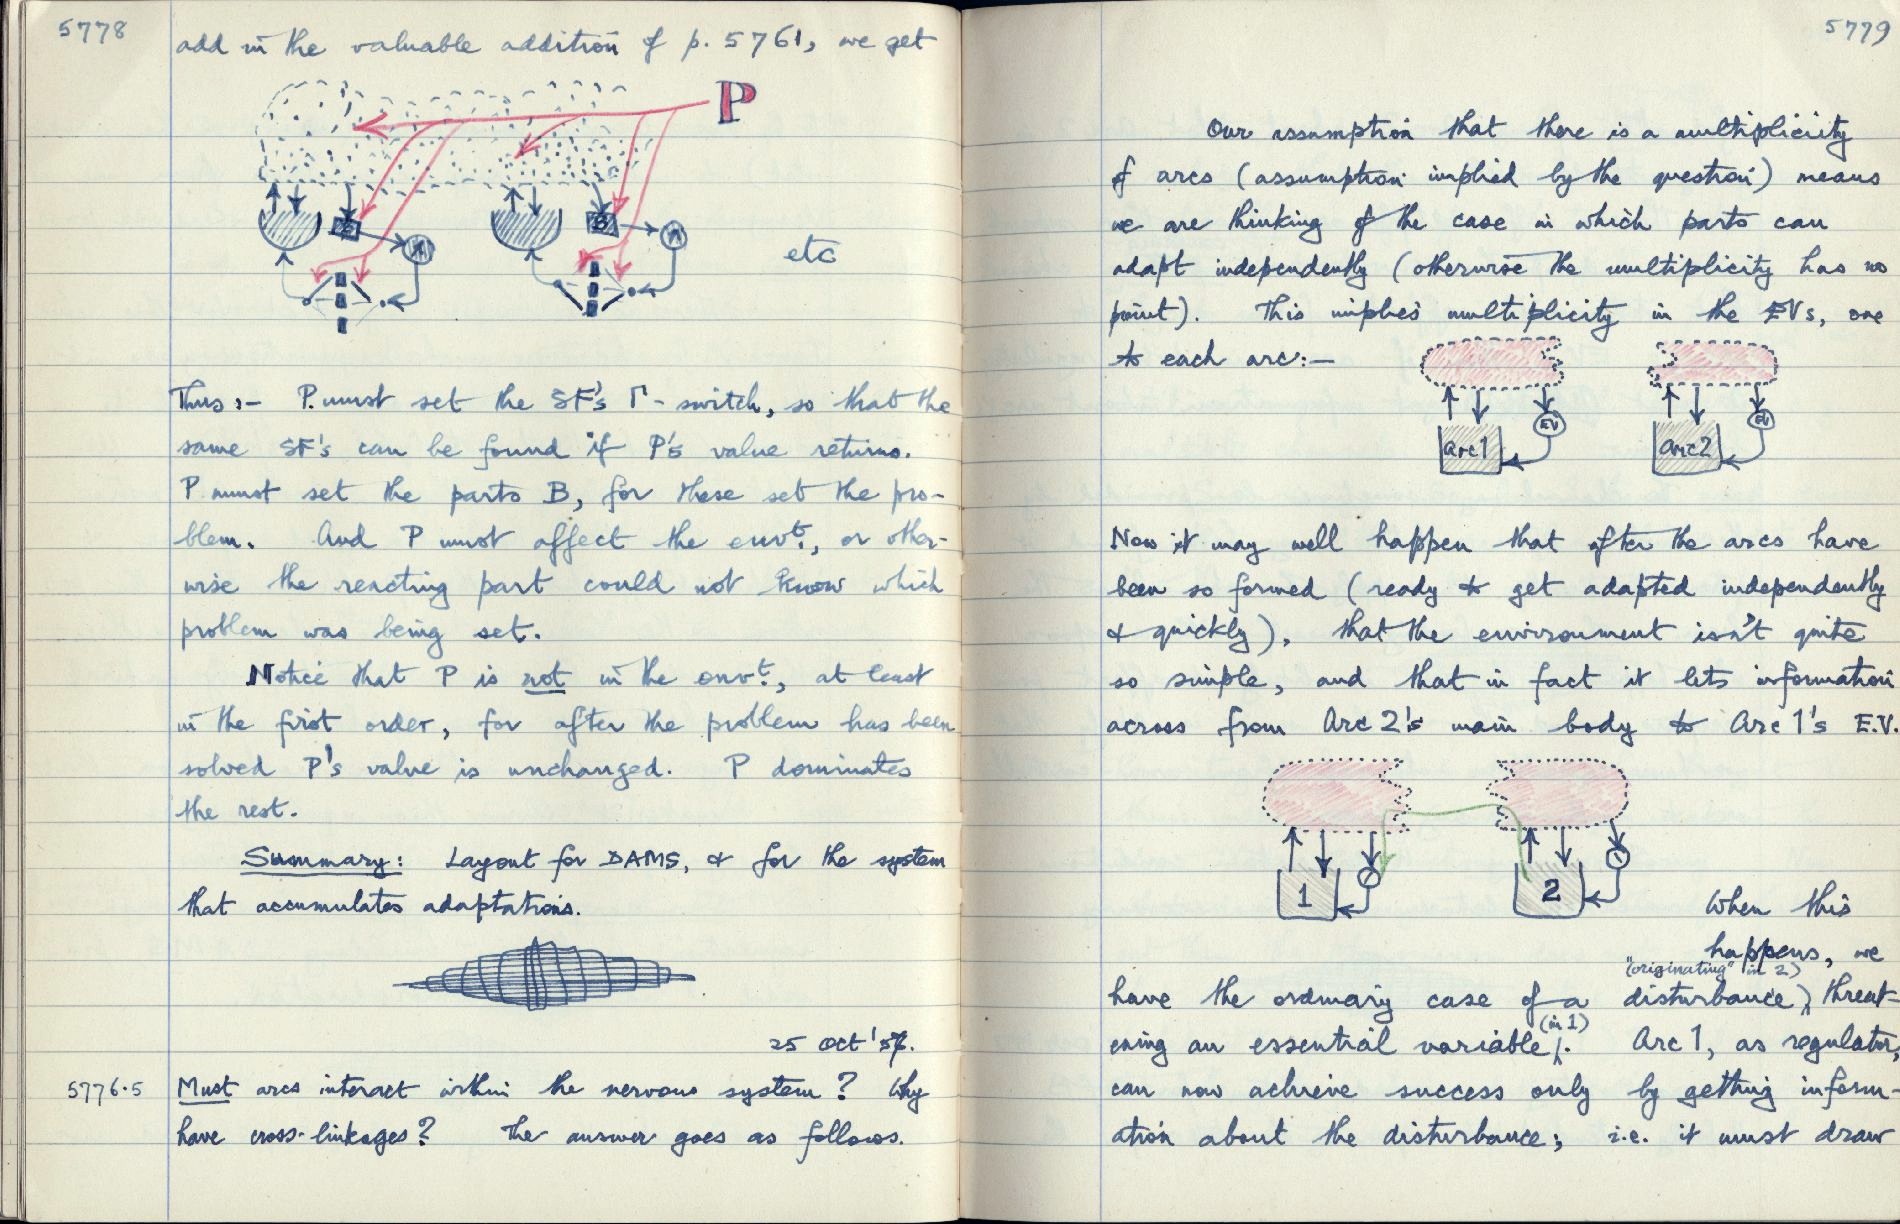 5778
add in the valuable addition of p. 5761, we get
P
B
B
etc
Thus:- P. must set the SF's Γ-switch, so that the
same SF's can be found if P's value returns.
P must set the parts B, for these set the pro-
blem. And P must affect the envt., or other-
wise the reacting part could not know which
problem was being set.
Notice that P is not in the envt., at least
in the first order, for after the problem has been
solved P's value is unchanged. P dominates
the rest.
Summary: Layout for DAMS, & for the system
that accumulates adaptations.
25 Oct '57.
5776.5 Must arcs interact within the nervous system? Why
have cross-linkages? The answer goes as follows.
5779
Our assumption that there is a multiplicity
of arcs (assumption implied by the question) means
we are thinking of the case in which parts can
adapt independently (otherwise the multiplicity has no
point). This implies multiplicity in the EVs, one
to each arc:-
EV
EV
Arc 1
Arc 2
Now it may well happen that after the arcs have
been so formed (ready to get adapted independently
& quickly), that the environment isn't quite
so simple, and that in fact it lets information
across from Arc 2's main body to Arc 1's E.V.
1
2
When this
happens, we
("originating" in 2)
have the ordinary case of a disturbance, threat-
(in 1)
ening an essential variable. Arc 1, as regulator,
can now achieve success only by getting inform-
ation about the disturbance; i.e. it must draw